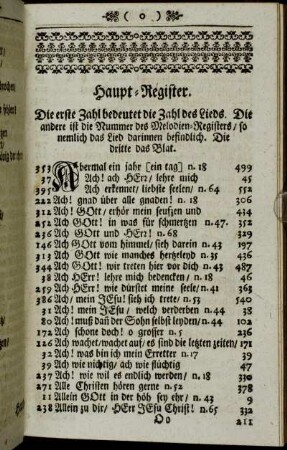 ( o )
Haupt-Register.
Die erste Zahl bedeutet die Zahl des Lieds. Die
andere ist die Nummer des Melodien-Registers/ so
nemlich das Lied darinnen befindlich. Die
dritte das Blat.
353 Abermal ein jahr [ein tag] n. 18 499
37 Ach! ach HErr/ lehre mich 45
395 Ach erkennet/ liebste seelen/ n. 64 552
222 Ach! gnad über alle gnaden! n. 18 306
311 Ach! GOtt/ erhör mein seufzen und 414
252 Ach! GOtt! in was für schmertzen n. 47. 352
236 Ach! GOtt und HErr! n. 68 329
146 Ach GOtt vom himmel/ sieh darein n. 43 197
313 Ach GOtt wie manches hertzeleyd n. 35
344 Ach GOtt! wir treten hier vor dich n. 43 487
38 Ach HErr! lehre mich bedencken/ n. 18 46
259 Ach HErr! wie dürstet meine seele/ n. 41 363
386 Ach/ mein JEsu! sieh ich trete/ n. 53 540
31 Ach! mein JEsu/ welch verderben n. 44 38
80 Ach! muß dañ der Sohn selbst leyden/ n. 44 102
172 Ach schone doch! o grosser n. 5 236
126 Ach wachet/ wachet auf/ es sind die letzten zeiten/ 171
32 Ach! was bin ich mein Erretter n. 17 39
39 Ach wie nichtig/ ach wie flüchtig 47
237 Ach! wie wil es endlich werden/ n. 18 330
271 Alle Christen hören gerne n. 52 378
11 Allein GOtt in der höh sey ehr/ n. 43 9
238 Allein zu dir/ HErr JEsu Christ! n. 65 332
Oo 211